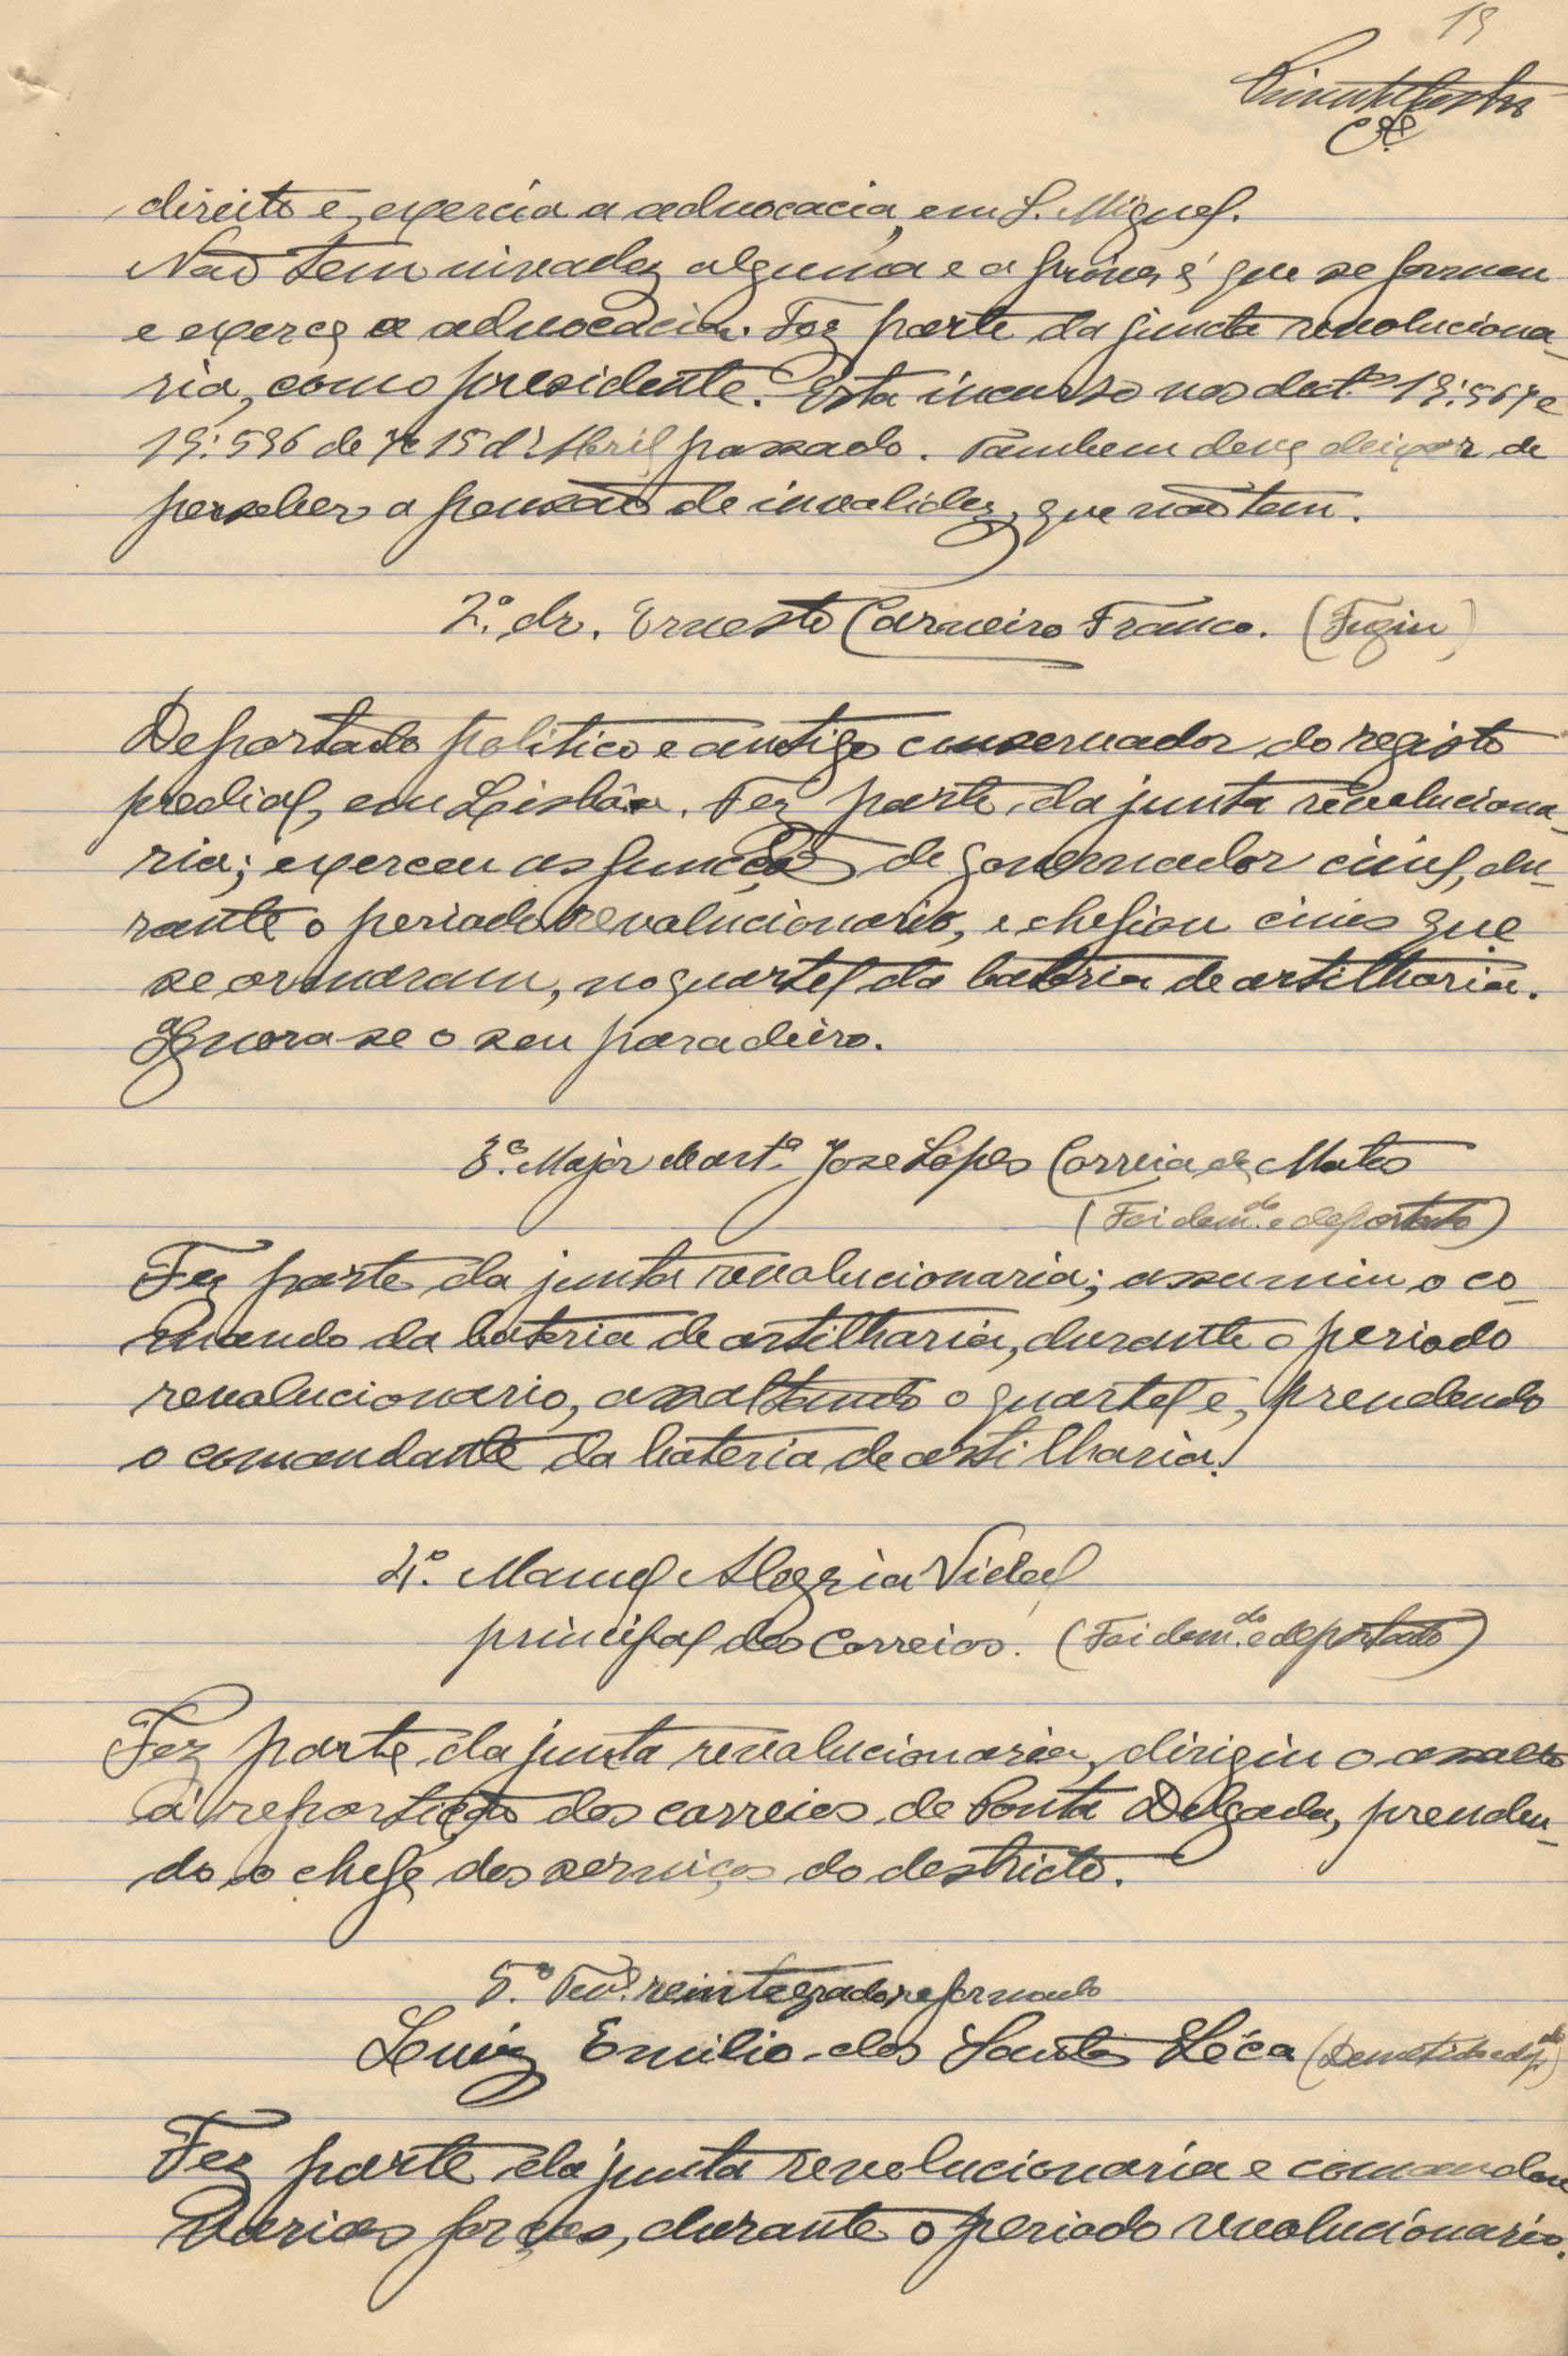 19
direito e, exercia a advocacia, em S. Miguel.
Não tem invalidez alguma e a prova é que se formou
e exerce a advocacia. Fez parte da juncta revoluciona-
ria, como presidente. Está incurso nos dect.os 19:567 e
19:596 de 7 e 15 d'Abril passado. Tambem deve deixar de
perseber a pensão de invalidez, que não tem.
2.º dr. Ernesto Carneiro Franco. (Fugiu)
Deportado politico e antigo conservador do registo
predial, em Lisbôa. Fez parte da junta revoluciona-
ria; exerceu as funções de governador civil, du-
rante o periodo revolucionario, e chefiou civis que
se armaram, no quartel da bateria de artilharia.
Ignora-se o seu paradeiro.
3.º Major de art.ª José Lopes Correia de Matos
(Foi dem.do e deportado)
Fez parte da junta revolucionaria; assumiu o co-
mando da bateria de artilharia, durante o periodo
revolucionario, assaltando o quartel e, prendendo
o comandante da bateria de artilharia.
4.º Manuel Alegria Vidal
principal dos Correios. (Foi dem.do e deportado)
Fez parte da junta revolucionaria, dirigiu o assalto
á repartição dos correios de Ponta Delgada, prenden-
do o chefe dos serviços do destricto.
5.º Ten.e reintegrado, reformado
Luiz Emilio dos Santos Léca (Demetido e dep.do)
Fez parte da junta revolucionária e comandou
varias forças, durante o periodo revolucionário.